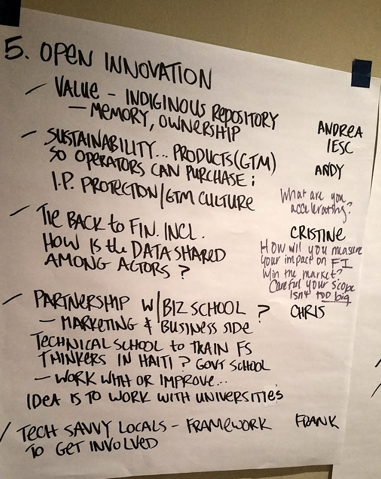 5. OPEN INNOVATION
— VALUE - INDIGINOUS REPOSITORY
— MEMORY, OWNERSHIP
ANDREA
IESC
— SUSTAINABILITY... PRODUCTS (GTM)
SO OPERATORS CAN PURCHASE;
I.P. PROTECTION/GTM CULTURE
ANDY
What are you
accelerating?
— TIE BACK TO FIN. INCL.
HOW IS THE DATA SHARED
AMONG ACTORS?
CRISTINE
How will you measure
your impact on FI
w/in the market?
Careful your scope
isn't too big
— PARTNERSHIP W/BIZ SCHOOL?
— MARKETING & BUSINESS SIDE
CHRIS
TECHNICAL SCHOOL TO TRAIN FS
THINKERS IN HAITI? GOVT SCHOOL
— WORK WITH OR IMPROVE...
IDEA IS TO WORK WITH UNIVERSITIES
/ TECH SAVVY LOCALS - FRAMEWORK
TO GET INVOLVED
FRANK